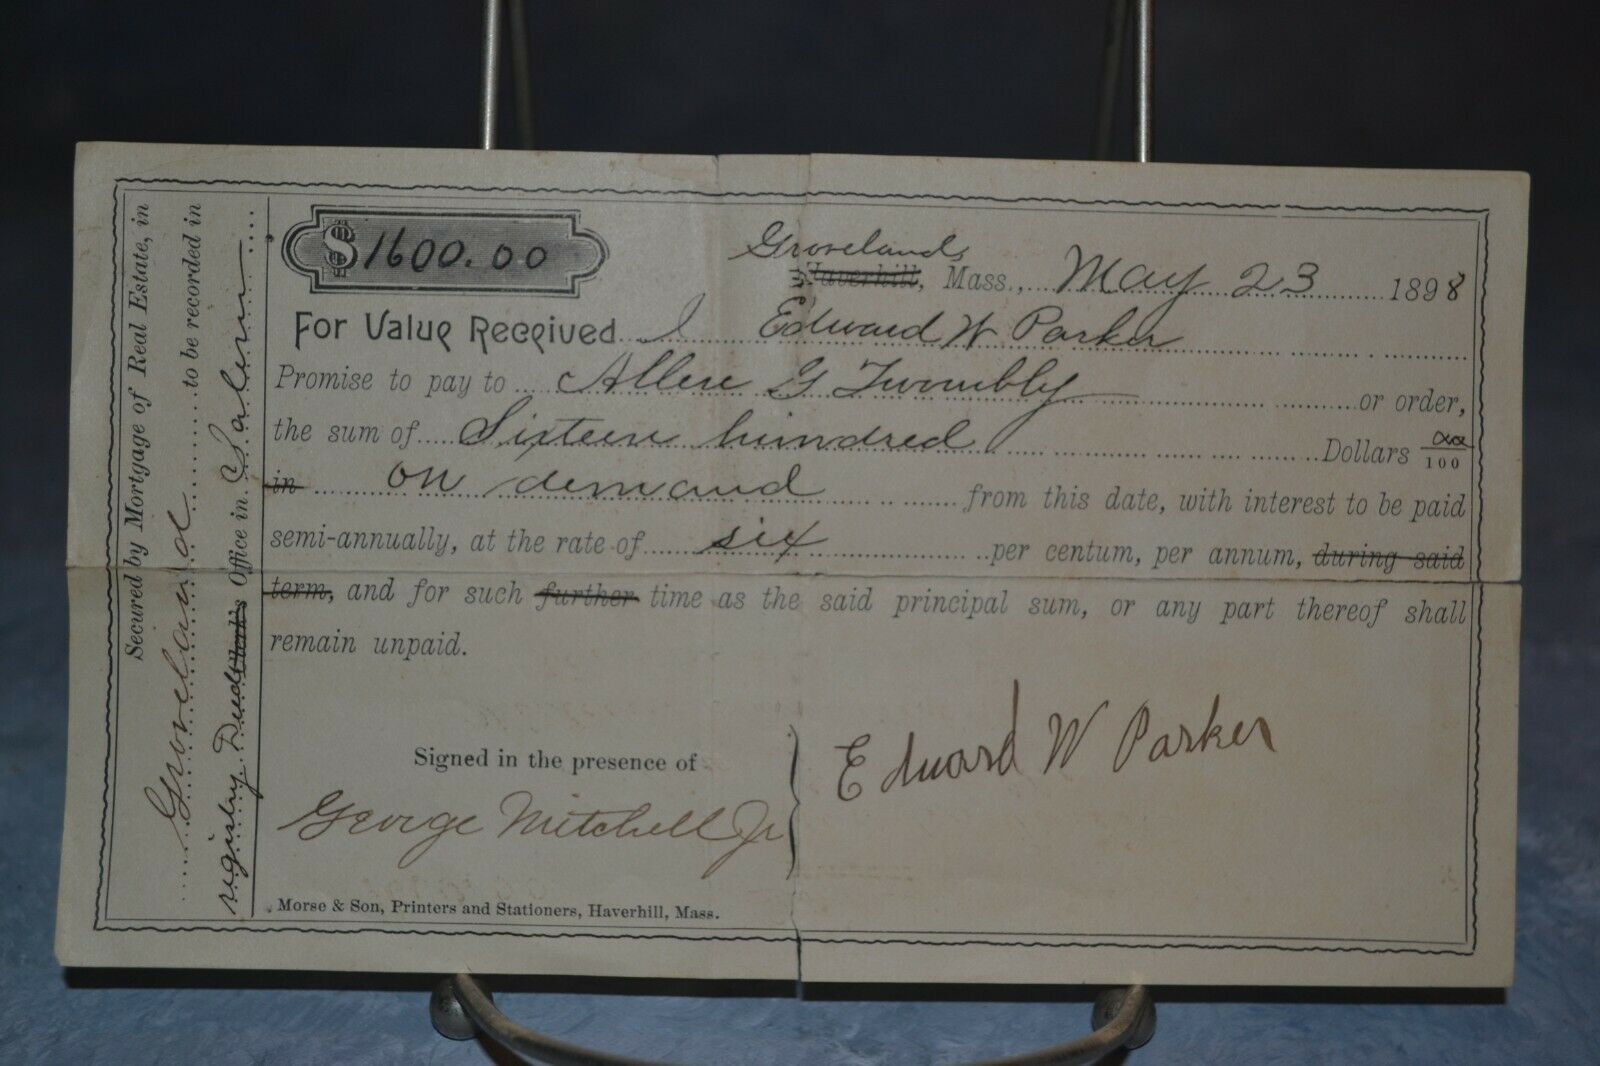 Secured by Mortgage of Real Estate, in
Groveland to be recorded in
registry Deeds Office in Salem
$1600.00
Groveland,
Haverhill, Mass., May 23 1898
For Value Received I Edward W Parker
Promise to pay to Allen G Twombly or order,
the sum of Sixteen hundred Dollars oo/100
in on demand from this date, with interest to be paid
semi-annually, at the rate of six per centum, per annum, during said
term, and for such further time as the said principal sum, or any part thereof shall
remain unpaid.
Signed in the presence of
George Mitchell Jr
Edward W Parker
Morse & Son, Printers and Stationers, Haverhill, Mass.